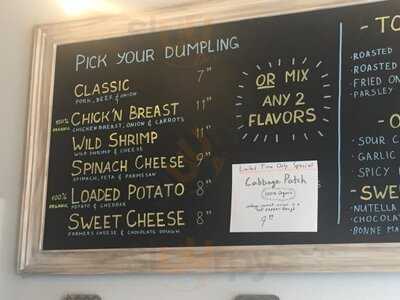 PICK YOUR DUMPLING
CLASSIC 7"
PORK, BEEF & ONION
100% ORGANIC CHICK'N BREAST 11"
CHICKEN BREAST, ONION & CARROTS
WILD SHRIMP 11"
WILD SHRIMP & CHEESE
SPINACH CHEESE 9"
SPINACH, FETA & PARMESAN
100% ORGANIC LOADED POTATO 8"
POTATO & CHEDDAR
SWEET CHEESE 8"
FARMER'S CHEESE & CHOCOLATE DOUGH
OR MIX
ANY 2
FLAVORS
Limited Time Only Special
Cabbage Patch
100% Organic
9"
- TO
ROASTED
ROASTED
FRIED ON
PARSLEY
- O
SOUR C
GARLIC
SPICY
- SWE
NUTELLA
CHOCOLA
BONNE MA